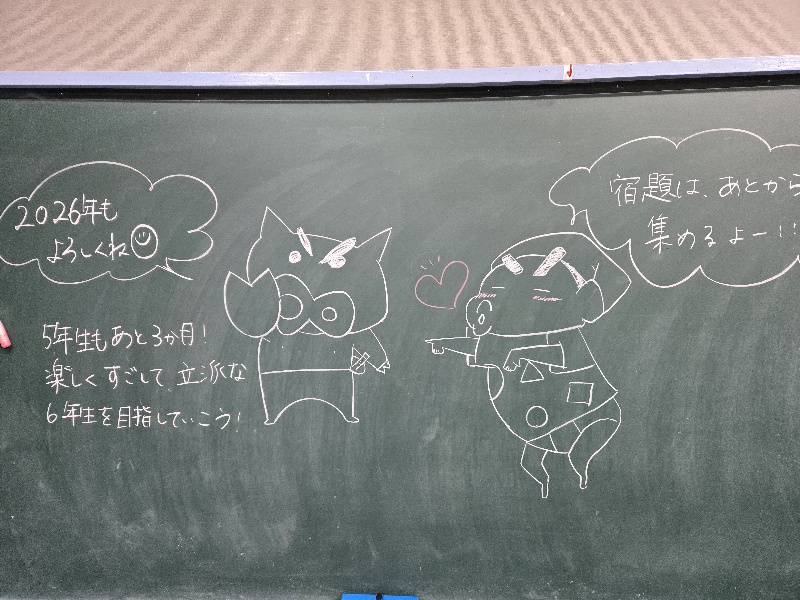 2026年も
よろしくね
5年生もあと3か月!
楽しくすごして、立派な
6年生を目指していこう!
宿題は、あとから
集めるよー!!